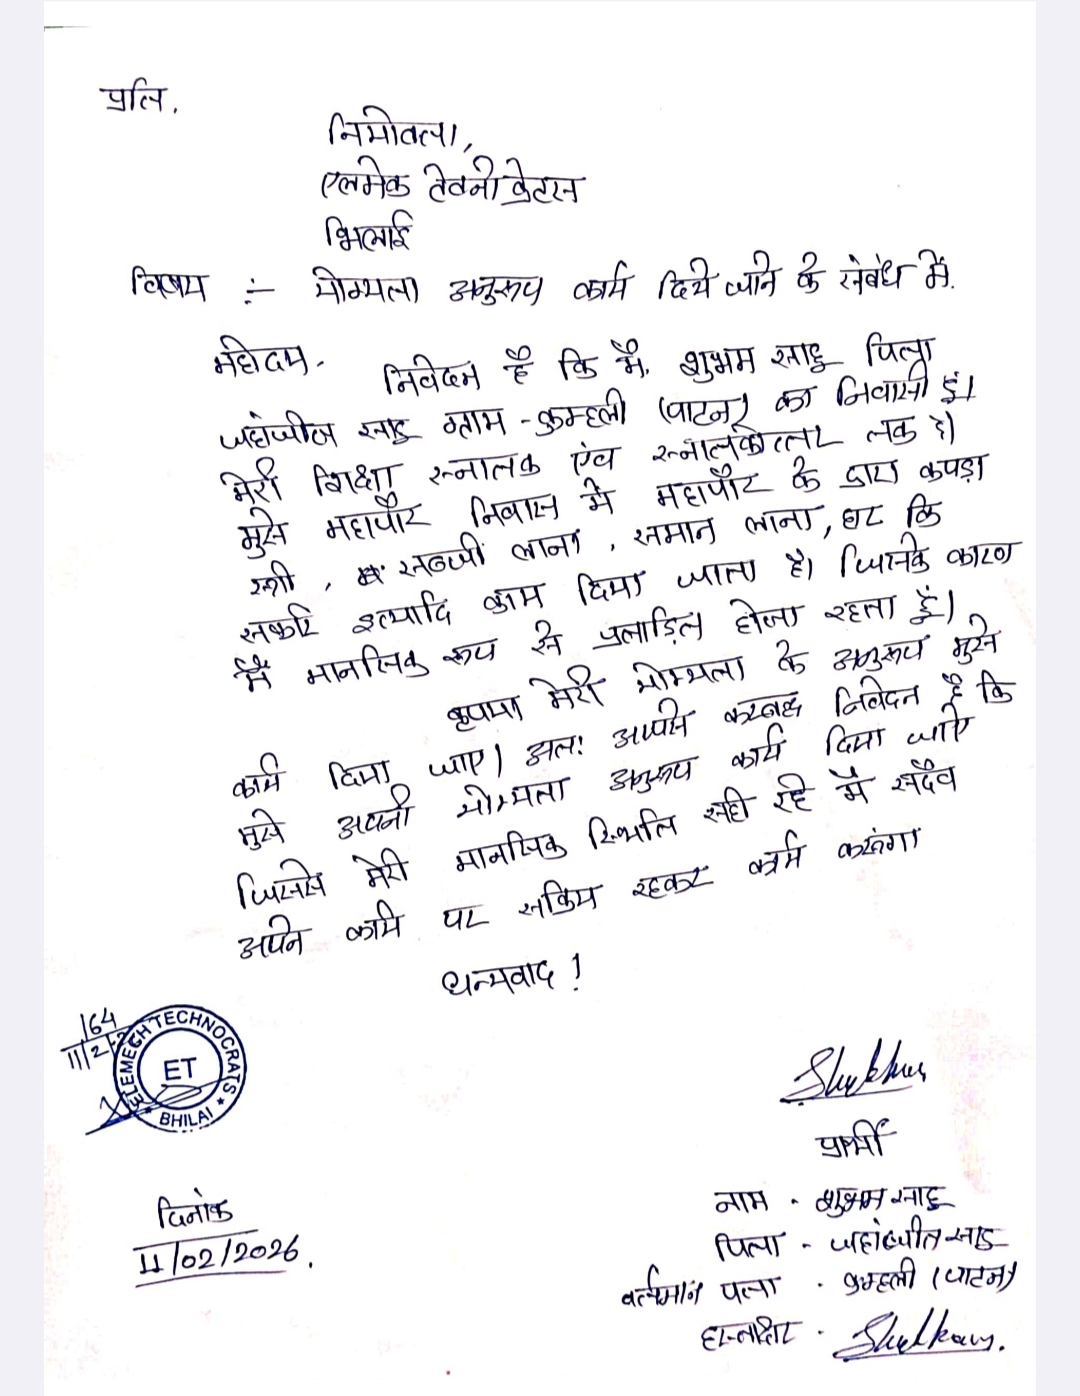 प्रति,
नियोक्ता,
एलमेक टेक्नोक्रेटस
भिलाई
विषय :- योग्यता अनुरूप कार्य दिये जाने के संबंध में.
महोदय.
निवेदन है कि मैं. शुभम साहू पिता
साहू ग्राम - कुम्हली (पाटन) का निवासी हूं।
मेरी शिक्षा स्नातक एंव स्नातकोत्तर तक है।
मुझे महापौर निवास में महापौर के द्वारा कपड़ा
स्त्री, सब्जी लाना, समान लाना, घर कि
सफाई इत्यादि काम दिया जाता है। जिसके कारण
मैं मानसिक रूप से प्रताड़ित होता रहता हूं।
कृपया मेरी योग्यता के अनुरूप मुझे
कार्य दिया जाए। अतः आपसे करबद्ध निवेदन है कि
मुझे अपनी योग्यता अनुरूप कार्य दिया जाऐ
जिससे मेरी मानसिक स्थिति सही रहे मैं सदैव
अपने कार्य पर सक्रिय रहकर कार्य करूंगा
धन्यवाद !
164
11/2/2
ELEMECH TECHNOCRATS
ET
BHILAI
प्रार्थी
नाम - शुभम साहू
पिता - साहू
वर्तमान पता - कुम्हली (पाटन)
हस्ताक्षर -
दिनांक
11/02/2026.